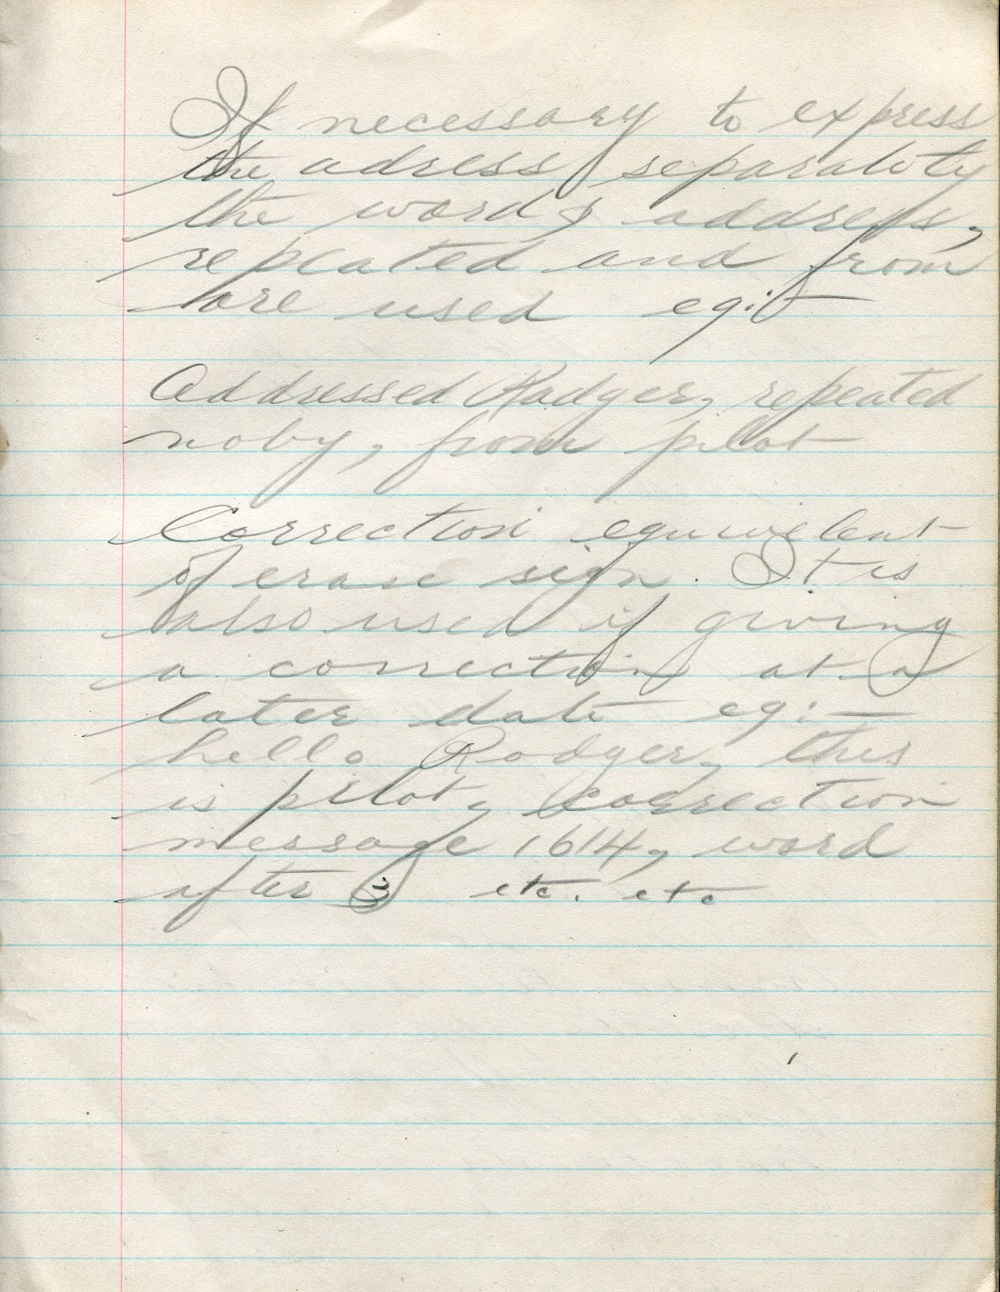 If necessary to express
the adress separately
the words address,
repeated and from
are used eg:-
Addressed Rodger, repeated
noby, from pilot
Correction equivelent
of erase sign. It is
also used if giving
a correction at a
later date eg:-
hello Rodger, this
is pilot, correction
message 1614, word
after 3 etc. etc